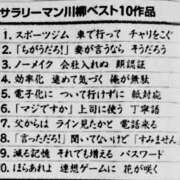 サラリーマン川柳ベスト10作品
1. スポーツジム 車で行って チャリをこぐ
2. 「ちがうだろ!」妻が言うなら そうだろう
3. ノーメイク 会社入れぬ 顔認証
4. 効率化 進めて気づく 俺が無駄
5. 電子化に ついて行けずに 紙対応
6. 「マジですか」上司に使う 丁寧語
7. 父からは ライン見たかと 電話来る
8. 「言っただろ!」聞いてないけど「すみません」
9. 減る記憶 それでも増える パスワード
0. ほらあれよ 連想ゲームに 花が咲く